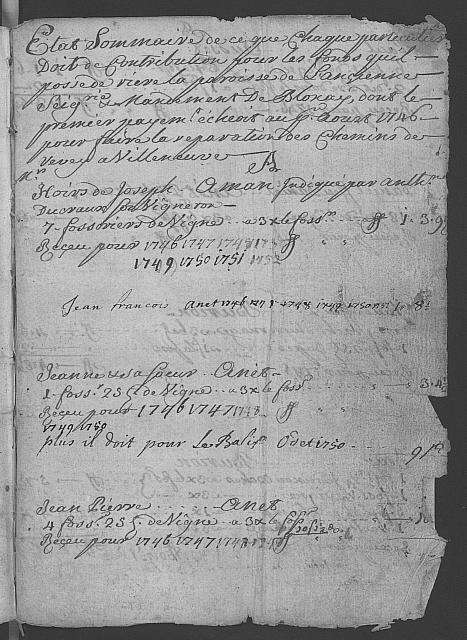 Etat Sommaire de ce que Chaque particulier
Doit de Contribution pour les fonds quil
possede riere la paroisse de Lancienne
Seig.rie & Mandement De Blonay, dont le
premier payem.t echeoit au p.r Aoust 1746
pour faire la reparation des Chemins de
Vevey a Villeneuve
A
Hoirs de Joseph Aman Indiqué par Anth.ne
Ducraux son Vigneron
7. fossoriers de Vigne .. a 3x le foss.r ff 1. 3. 9
Reçeu pour 1746 1747 1748 ff
1749 1750 1751 1752
Jean francois Anet 1746 1748 1749 1750 1. 8
Jeanne & sa soeur .. Anet
1. foss.r 25 de Vigne .. a 3x le foss. 3. 4
Reçeu pour 1746 1747 1748 ff
1749 1750
plus il doit pour le Balif 1750 9
Jean Pierre Anet
4 foss.r 25 de Vigne .. a 3x le foss.
Reçeu pour 1746 1747 1748